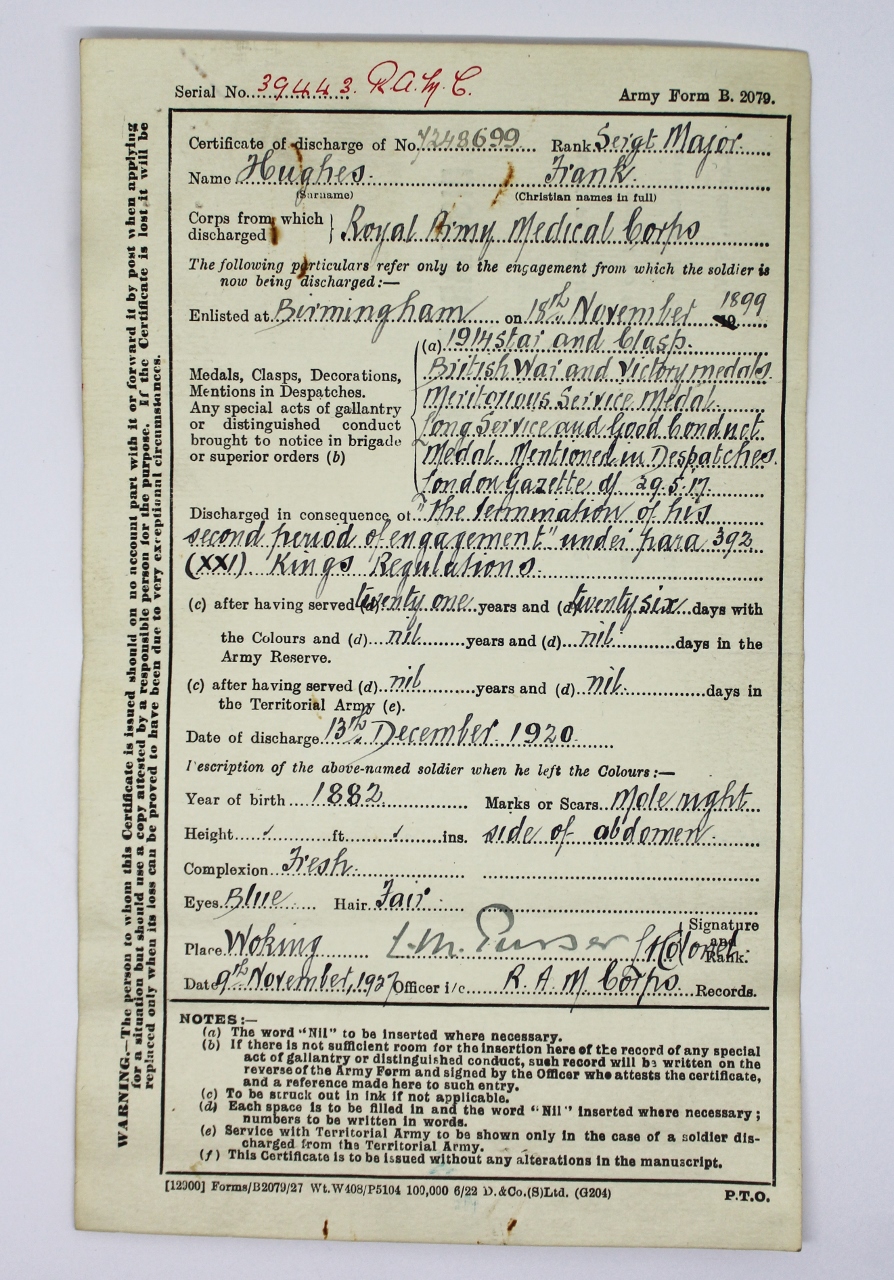 Serial No. 39443. R.A.M.C. Army Form B. 2079.
Certificate of discharge of No. 7248699 Rank Sergt Major
Name Hughes. Frank.
(Surname) (Christian names in full)
Corps from which
discharged } Royal Army Medical Corps
The following particulars refer only to the engagement from which the soldier is
now being discharged:—
Enlisted at Birmingham on 18th November 1899
Medals, Clasps, Decorations,
Mentions in Despatches.
Any special acts of gallantry
or distinguished conduct
brought to notice in brigade
or superior orders (b)
(a) 1914 Star and Clasp.
British War and Victory medals.
Meritorious Service Medal.
Long Service and Good Conduct
Medal. Mentioned in Despatches.
London Gazette of 29.5.17.
Discharged in consequence of "The termination of his
second period of engagement" under para 392
(XXI) Kings Regulations.
(c) after having served (d) twenty one years and (d) twenty six days with
the Colours and (d) nil years and (d) nil days in the
Army Reserve.
(c) after having served (d) nil years and (d) nil. days in
the Territorial Army (e).
Date of discharge 13th December 1920.
Description of the above-named soldier when he left the Colours:—
Year of birth 1882 Marks or Scars. Mole right
Height ft. ins. side of abdomen.
Complexion Fresh.
Eyes. Blue Hair. Fair
Signature
and
Place Woking L.M. Purser Lt Colonel. Rank.
Date 9th November, 1927 Officer i/c R. A. M Corps. Records.
NOTES:—
(a) The word "Nil" to be inserted where necessary.
(b) If there is not sufficient room for the insertion here of the record of any special
act of gallantry or distinguished conduct, such record will be written on the
reverse of the Army Form and signed by the Officer who attests the certificate,
and a reference made here to such entry.
(c) To be struck out in ink if not applicable.
(d) Each space is to be filled in and the word "Nil" inserted where necessary;
numbers to be written in words.
(e) Service with Territorial Army to be shown only in the case of a soldier dis-
charged from the Territorial Army.
(f) This Certificate is to be issued without any alterations in the manuscript.
[12900] Forms/B2079/27 Wt.W408/P5104 100,000 6/22 D.&Co.(S)Ltd. (G204) P.T.O.
WARNING.—The person to whom this Certificate is issued should on no account part with it or forward it by post when applying
for a situation but should use a copy attested by a responsible person for the purpose. If the Certificate is lost it will be
replaced only when its loss can be proved to have been due to very exceptional circumstances.